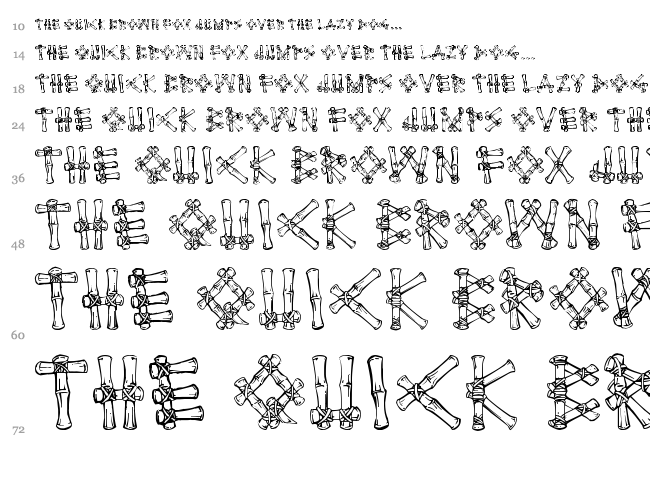 10 THE QUICK BROWN FOX JUMPS OVER THE LAZY DOG...
14 THE QUICK BROWN FOX JUMPS OVER THE LAZY DOG...
18 THE QUICK BROWN FOX JUMPS OVER THE LAZY DOG
24 THE QUICK BROWN FOX JUMPS OVER THE
36 THE QUICK BROWN FOX JU
48 THE QUICK BROWN F
60 THE QUICK BRO
72 THE QUICK BR